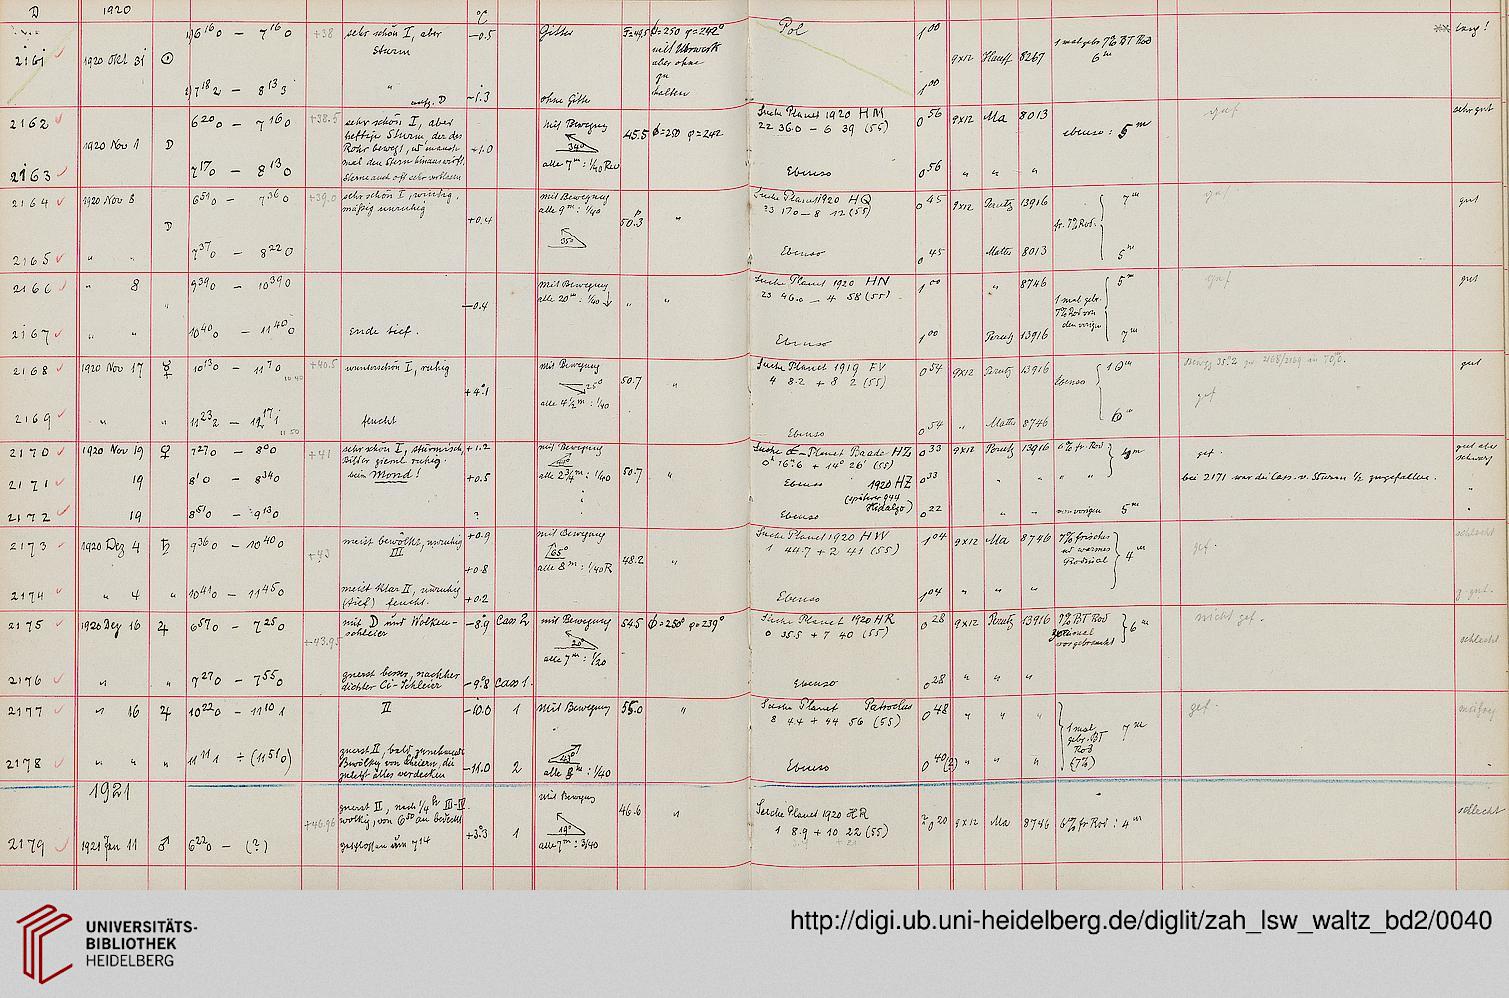 D 1920 °C
1) 6 16 0 – 7 16 0 +38 sehr schön I, aber Sturm –0.5 Gitter F=49.5 ϕ=250 φ=242° mit Uhrwerk aber ohne zu halten Pol 1 00 1 mal gebr. 7% BT Rod 6 m lang!
2161 1920 Okt 31 ☉ 9x12 Hauff 8267
2) 7 18 2 – 8 13 3 " –1.3 ohne Gitter 1 00
2162 6 20 0 – 7 16 0 +38.5 sehr schön I, aber heftiger Sturm, der das Rohr bewegt, Mit Bewegung 45.5 ϕ=250 φ=242 Suche Planet 1920 HM 0 56 9x12 Ma 8013 gef sehr gut
22 36.0 – 6 39 (55) ebenso: 5 m
1920 Nov 1 D +1.0 34°
2163 7 17 0 – 8 13 0 mal den Stern hinauswirft. Sterne auch oft sehr verblasen alle 7 m : 1/40 Rev Ebenso 0 56 " " "
2164 1920 Nov 8 6 51 0 – 7 36 0 +39.0 sehr schön I, windig, mäßig unruhig mit Bewegung alle 9 m : 1/40 Suche Planet 1920 HQ 0 45 9x12 Perutz 13916 7 m gef gut
23 17.0 – 8 12 (55)
D +0.4 35° 50.3 " fr. 7% Rod.
2165 " " 7 37 0 – 8 22 0 Ebenso 0 45 Matter 8013 5 m
2166 " 8 9 39 0 – 10 39 0 mit Bewegung alle 20 m : 1/40 Suche Planet 1920 HN 1 00 " 8746 5 m gef gut
23 46.0 – 4 58 (55)
" –0.4 " " 1 mal gebr. 7% Rod von den vorigen
2167 " " 10 40 0 – 11 40 0 Ende tief. Ebenso 1 00 Perutz 13916 7 m
2168 1920 Nov 17 ☿ 10 13 0 – 11 7 0 +40.5 wunderschön I, ruhig mit Bewegung Suche Planet 1919 FV 0 54 9x12 Perutz 13916 10 m gut
4 8.2 + 8 2 (55)
+4.1 25° 50.7 " ebenso
alle 4½ m : 1/40 gef
2169 " " 11 23 2 – 12 17 1 feucht Ebenso 0 54 " Matter 8746 6 m
2170 1920 Nov 19 ♀ 7 27 0 – 8 0 0 +41 sehr schön I, stürmisch +1.2 mit Bewegung Suche α–Planet Baade HZ 0 33 9x12 Perutz 13916 6% fr. Rod gef. gut aber schwarz
Bilder ziemlich ruhig. 0h 16m6 + 14° 26' (55)
2171 19 8 1 0 – 8 34 0 beim Mond! +0.5 alle 2¾ m : 1/40 50.7 " Ebenso 1920 HZ 0 33 " " " bei 2171 war die Cass. v. Sturm ½ zugefallen.
(später 944 Hidalgo)
2172 19 8 51 0 – 9 13 0 ? Ebenso 0 22 " " von vorigen 5 m
2173 1920 Dez 4 ♄ 9 36 0 – 10 40 0 +43 meist bewölkt, unruhig III +0.9 mit Bewegung Suche Planet 1920 HW 1 04 9x12 Ma 8746 7% frisches und warmes Rodinal 4 m gef. schlecht
1 44.7 + 2 41 (55)
65° 48.2 "
+0.8 alle 8 m : 1/40 R
2174 " 4 " 10 41 0 – 11 45 0 meist klar II, unruhig (tief) feucht. +0.2 Ebenso 1 04 " " " g. gut.
2175 1920 Dez 16 ♃ 6 57 0 – 7 25 0 mit D und Wolkenschleier –8.9 Cass 2 mit Bewegung 54.5 ϕ=250° φ=239° Suche Planet 1920 HR 0 28 9x12 Perutz 13916 7% BT Rod 6 m nicht gef.
0 35.5 + 7 40 (55)
+43.95 20° schlecht
alle 7 m : 1/20
2176 " " 7 27 0 – 7 55 0 zuerst besser, nachher dichter Ci-Schleier –9.8 Cass 1. Ebenso 0 28 " " "
2177 " 16 ♃ 10 22 0 – 11 10 1 II –10.0 1 Mit Bewegung 55.0 " Suche Planet Patroclus 0 48 " " " gef.
8 4.4 + 44 56 (55) 1 mal gebr. BT Rod (7%) 7 m
43°
2178 " " " 11 11 1 ÷ (11 51 0) zuerst II, bald zunehmende Bewölkg von Schleiern, die zuletzt alles verdecken –11.0 2 alle 8 m : 1/40 Ebenso 0 40 (?) " " "
1921
zuerst II, nach ¼ h III–IV. wolkig, von 6 50 an bedeckt Mit Bewegung 46.6 " Suche Planet 1920 HR 0 20 9x12 Ma 8746 6% fr Rod : 4 m schlecht
+46.96 1 8.9 + 10 22 (55)
2179 1921 Jan 11 ♂ 6 22 0 – (?) geschlossen um 7 14 +3.3 1 19° alle 7 m : 3/40
UNIVERSITÄTS-
BIBLIOTHEK
HEIDELBERG
http://digi.ub.uni-heidelberg.de/diglit/zah_lsw_waltz_bd2/0040